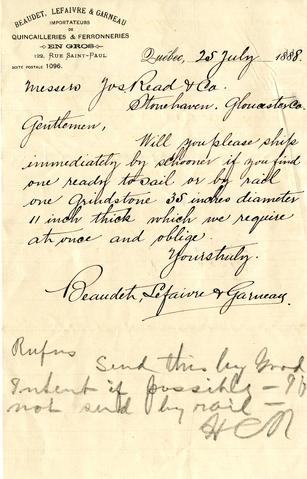 BEAUDET, LEFAIVRE & GARNEAU
IMPORTATEURS
DE
QUINCAILLERIES & FERRONNERIES
EN GROS
122, RUE SAINT-PAUL
BOITE POSTALE 1096.
Québec, 25 July 1888.
Messers Jos Read & Co.
Stonehaven. Gloucester Co.
Gentlemen,
Will you please ship
immediately by schooner if you find
one ready to sail or by rail
one Grindstone 55 inches diameter
11 inch thick which we require
at once and oblige.
Yours truly.
Beaudet, Lefaivre & Garneau
Rufus
Send this by Good
Intent if possible — If
not send by rail —